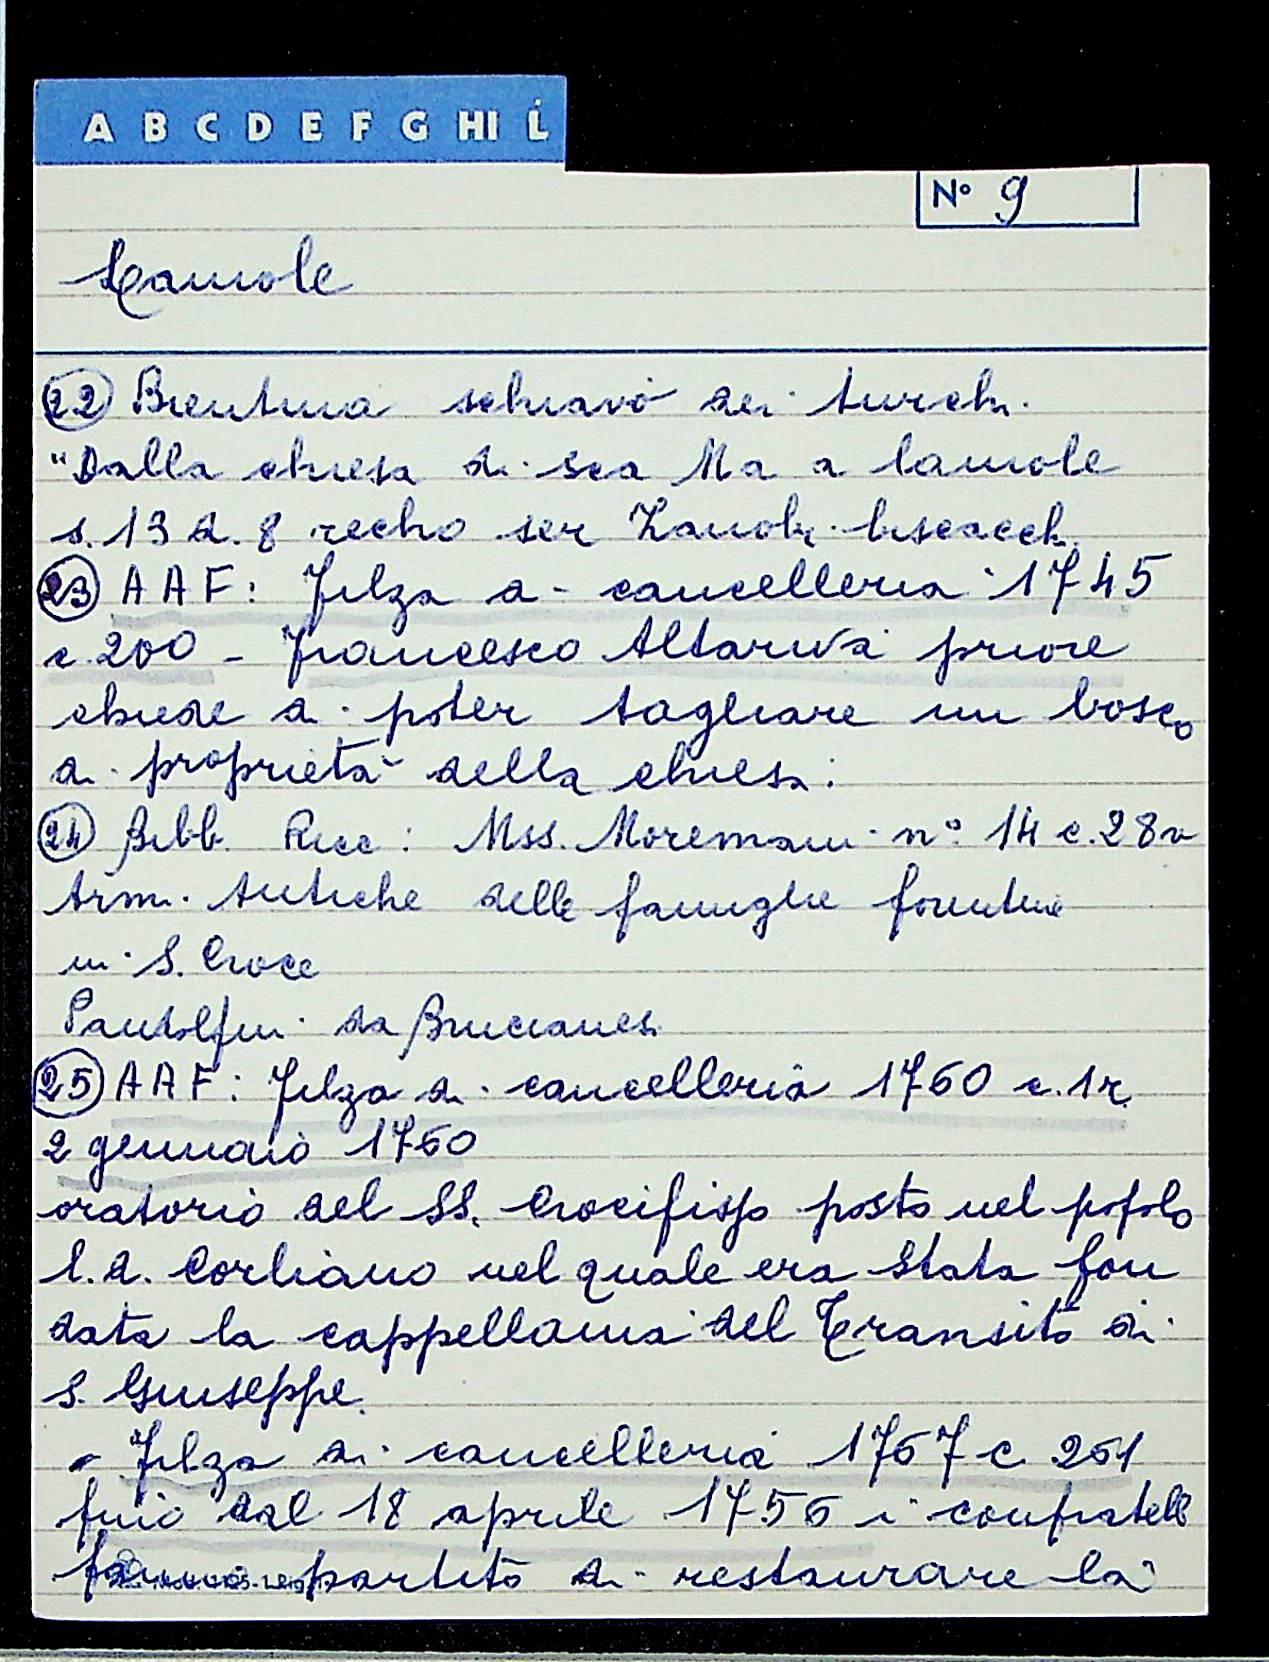 A B C D E F G HI L
Nº 9
Lamole
22 Brentina schiavo dei turchi
"Dalla chiesa di sca Ma a lamole
s. 13 d. 8 recho ser Zanobi biscacchi
23 AAF: Filza di cancelleria 1745
c 200 - Francesco Altariva priore
chiede di poter tagliare un bosco
di proprietà della chiesa.
24 Bibb. Ricc: Mss. Moreniani nº 14 c. 28v
Armi Antiche delle famiglie fiorentine
in S. Croce
Pandolfini da Brucianesi
25 AAF: Filza di cancelleria 1760 c. 1r
2 gennaio 1760
oratorio del SS. Crocifisso posto nel popolo
S. d. Corliano nel quale era stata fon
data la cappellania del Transito di
S. Giuseppe.
- Filza di cancelleria 1767 c 261
fino dal 18 aprile 1756 i confratelli
partito di restaurare la